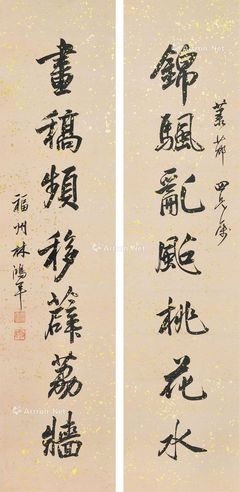 四兄屬
錦颿亂颭桃花水
畫稿頻移薜荔牆
福州林鴻年
Artron.Net